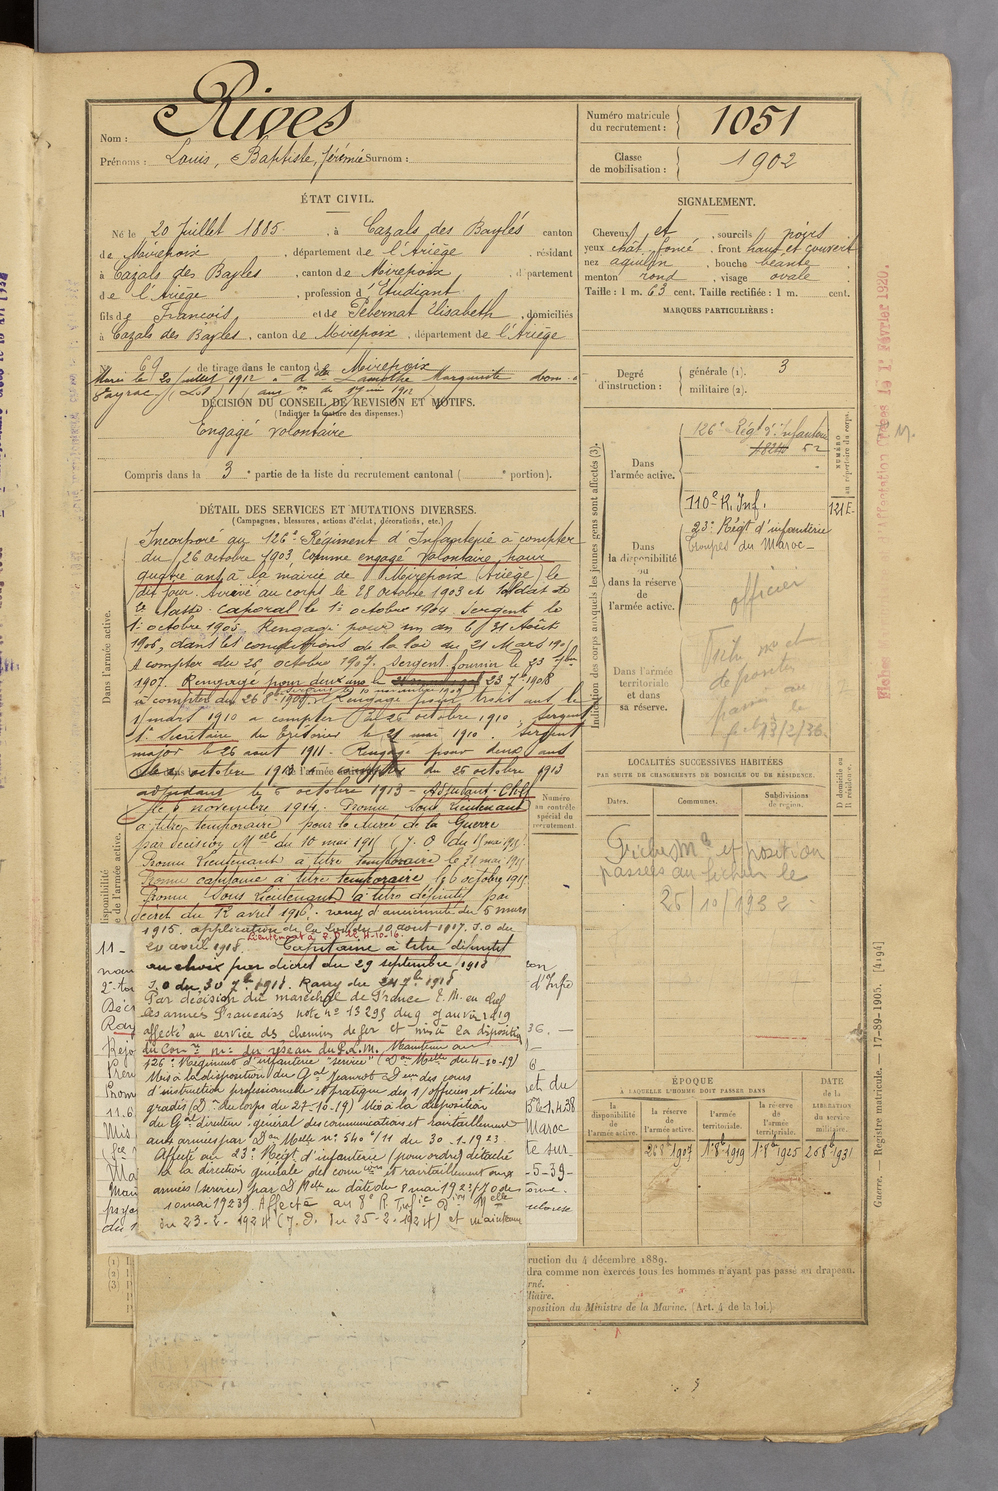 Nom : Rives
Prénoms : Louis, Baptiste, Jérémie Surnom :
Numéro matricule du recrutement : 1051
Classe de mobilisation : 1902
ÉTAT CIVIL.
Né le 20 Juillet 1885, à Cazals des Bayles canton
de Mirepoix, département de l'Ariège, résidant
à Cazals des Bayles, canton de Mirepoix, département
de l'Ariège, profession d'Etudiant
fils de François et de Pebernat Elisabeth, domiciliés
à Cazals des Bayles, canton de Mirepoix, département de l'Ariège
69 de tirage dans le canton de Mirepoix
Marié le 20 juillet 1912 à dlle Lamothe Marguerite dom. à
Payrac (Lot)
DÉCISION DU CONSEIL DE REVISION ET MOTIFS.
(Indiquer la nature des dispenses.)
Engagé volontaire
Compris dans la 3e partie de la liste du recrutement cantonal ( e portion).
SIGNALEMENT.
Cheveux et , sourcils noirs
yeux chât. foncé , front haut et couvert
nez aquilin , bouche béante
menton rond , visage ovale
Taille : 1 m. 63 cent. Taille rectifiée : 1 m. cent.
MARQUES PARTICULIÈRES :
Degré d'instruction : générale (1). 3
militaire (2).
DÉTAIL DES SERVICES ET MUTATIONS DIVERSES.
(Campagnes, blessures, actions d'éclat, décorations, etc.)
Dans l'armée active.
Incorporé au 126e Régiment d'Infanterie à compter
du 26 octobre 1903 comme engagé volontaire pour
quatre ans à la mairie de Mirepoix (Ariège) le
dit jour. Arrivé au corps le 28 octobre 1903 et soldat de
2e classe. Caporal le 1er octobre 1904. Sergent le
1er octobre 1905. Rengagé pour un an le 31 Août
1906, dans les conditions de la loi du 21 Mars 1905
à compter du 26 octobre 1907. Sergent fourrier le 23 7bre
1907. Rengagé pour deux ans le 23 7bre 1908
à compter du 26 8bre 1908. Rengagé pour trois ans le
1 mars 1910 à compter du 26 octobre 1910, Sergent
1er Secrétaire du Trésorier le 21 mai 1910. Sergent
major le 26 aout 1911. Rengagé pour deux ans
octobre 1913 du 26 octobre 1913
adjudant le 6 octobre 1913 - Adjudant-Chef
le 5 novembre 1914. Promu sous lieutenant
à titre temporaire pour la durée de la Guerre
par décision Melle du 10 mai 1915 (J. O. du 15 mai 1915)
Promu Lieutenant à titre temporaire le 21 mai 1915
Promu capitaine à titre temporaire le 6 octobre 1915
Promu Sous Lieutenant à titre définitif par
décret du 12 avril 1916. rang d'ancienneté du 5 mars
1915. application de la Loi du 10 aout 1917. J.O du
20 avril 1918. Lieutenant à T.D le 4-10-16.
Capitaine à titre définitif
au choix par décret du 29 septembre 1918
J.O du 30 7bre 1918. Rang du 24 7bre 1918
Par décision du maréchal de France C. M. en chef
les armées Françaises note no 13295 du 9 janvier 1919
affecté au service des chemins de fer et mis à la disposition
du Comre Mre du réseau du P.L.M. Maintenu au
126e Régiment d'infanterie "service" (Don Melle du 4-10-19)
Mis à la disposition du Gal Jeanrot Don des cours
d'instruction professionnelle et pratique des s/officiers et élèves
gradés (Don du corps du 27-10-19) Mis à la disposition
du Gal directeur général des communications et ravitaillement
aux armées par Don Melle no 540 4/11 du 30-1-1923
Affecté au 23e Régt d'infanterie (pour ordre) détaché
à la direction générale des comtions et ravitaillement aux
armées (service) par D Melle en date du 8 mai 1923 J O du
10 mai 1923. Affecté au 8e R. Don Melle
du 23-2-1924 (J. O. du 25-2-1924) et maintenu
Indication des corps auxquels les jeunes gens sont affectés (3).
NUMÉRO au répertoire du corps.
Dans l'armée active.
126e Régt d'Infanterie
52
110e R. Inf. 121 E
Dans la disponibilité ou dans la réserve de l'armée active.
23e Régt d'infanterie
Troupes du Maroc
officier
Dans l'armée territoriale et dans sa réserve.
Fiche mle et
de position
passée au
le
13/2/36
Fiches d'Affectation Placées le 1er Février 1920.
LOCALITÉS SUCCESSIVES HABITÉES
PAR SUITE DE CHANGEMENTS DE DOMICILE OU DE RÉSIDENCE.
D domicile ou R résidence.
Numéro au contrôle spécial du recrutement
Dates. Communes. Subdivisions de région.
Fiches Mle et position
passées au fichier le
25/10/1932
ÉPOQUE
À LAQUELLE L'HOMME DOIT PASSER DANS
DATE de la LIBÉRATION du service militaire.
la disponibilité de l'armée active.
la réserve de l'armée active.
l'armée territoriale.
la réserve de l'armée territoriale.
26 8bre 1907 1er 8bre 1919 1er 8bre 1925 26 8bre 1931
ruction du 4 décembre 1889.
dra comme non exercés tous les hommes n'ayant pas passé au drapeau.
sposition du Ministre de la Marine. (Art. 4 de la loi.)
Guerre. — Registre matricule. — 17-89-1905. [4194]